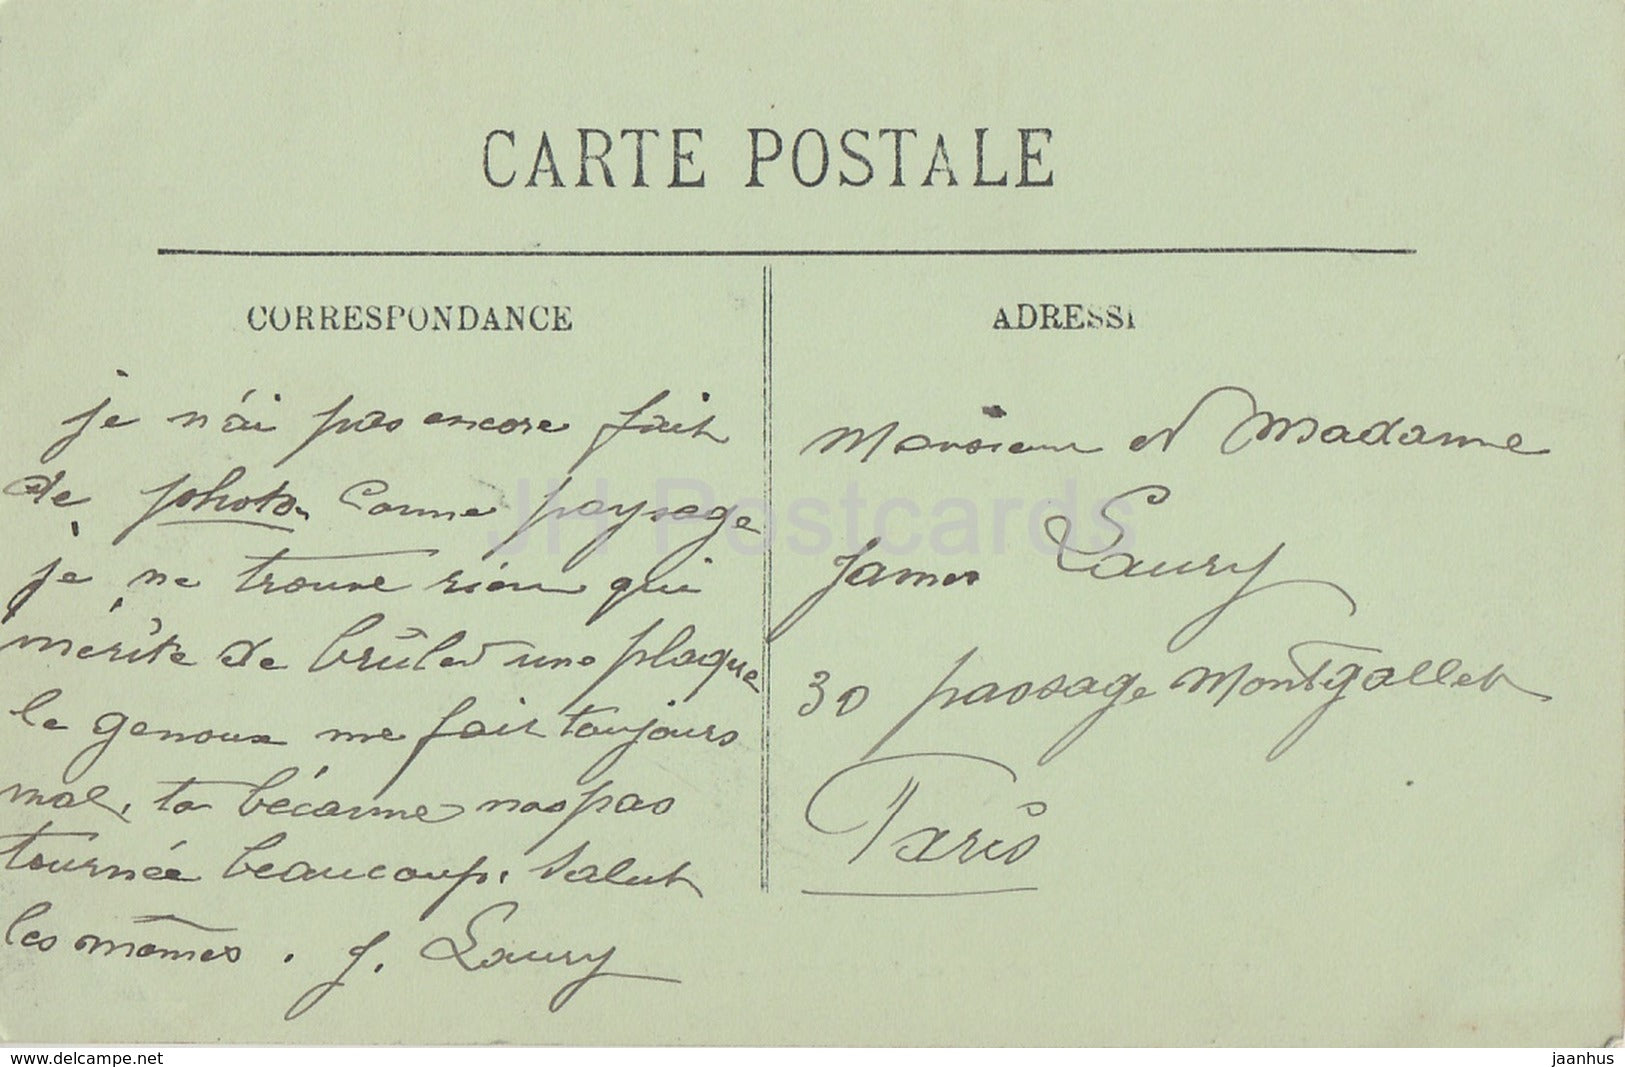 CARTE POSTALE
CORRESPONDANCE
je n'ai pas encore fait
de photo. Comme paysage
je ne trouve rien qui
mérite de brûler une plaque
le genoux me fait toujours
mal, ta bécanne nas pas
tournée beaucoup. Salut
les mômes. J. Laury
ADRESSE
Monsieur et Madame
James Laury
30 passage Montgallet
Paris
JH Postcards
www.delcampe.net
jaanhus